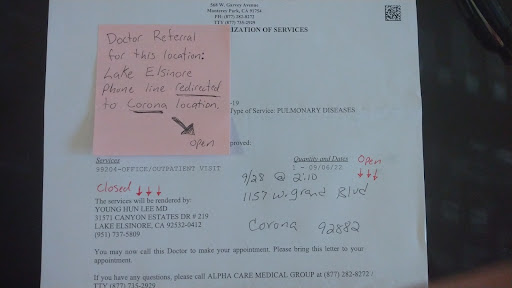 568 W. Garvey Avenue
Monterey Park, CA 91754
PH: (877) 282-8272
TTY (877) 735-2929
IZATION OF SERVICES
Doctor Referral
for this location:
Lake Elsinore
Phone line redirected
to Corona location.
open
-19
Type of Service: PULMONARY DISEASES
proved.
Services
Quantity and Dates
open
99204-OFFICE/OUTPATIENT VISIT
1 - 09/06/22
9/28 @ 2:10
Closed
1157 W. Grand Blvd
The services will be rendered by:
YOUNG HUN LEE MD
31571 CANYON ESTATES DR # 219
LAKE ELSINORE, CA 92532-0412
(951) 737-5809
Corona 92882
You may now call this Doctor to make your appointment. Please bring this letter to your
appointment.
If you have any questions, please call ALPHA CARE MEDICAL GROUP at (877) 282-8272 /
TTY (877) 735-2929